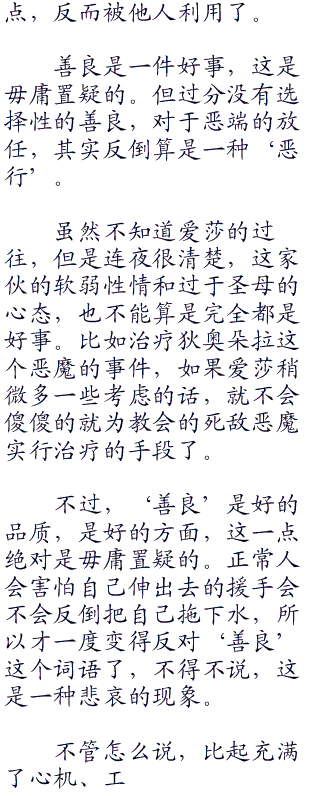 点，反而被他人利用了。
善良是一件好事，这是
毋庸置疑的。但过分没有选
择性的善良，对于恶端的放
任，其实反倒算是一种‘恶
行’。
虽然不知道爱莎的过
往，但是连夜很清楚，这家
伙的软弱性情和过于圣母的
心态，也不能算是完全都是
好事。比如治疗狄奥朵拉这
个恶魔的事件，如果爱莎稍
微多一些考虑的话，就不会
傻傻的就为教会的死敌恶魔
实行治疗的手段了。
不过，‘善良’是好的
品质，是好的方面，这一点
绝对是毋庸置疑的。正常人
会害怕自己伸出去的援手会
不会反倒把自己拖下水，所
以才一度变得反对‘善良’
这个词语了，不得不说，这
是一种悲哀的现象。
不管怎么说，比起充满
了心机、工